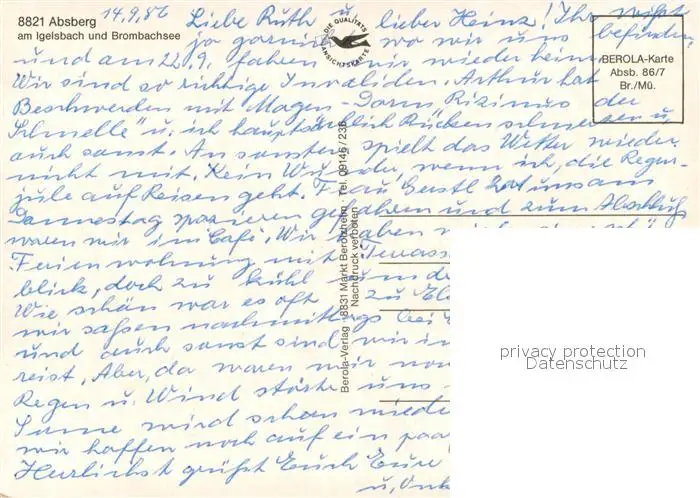 8821 Absberg
am Igelsbach und Brombachsee
14.9.86
DIE QUALITÄTS
ANSICHTSKARTE
BEROLA-Karte
Absb. 86/7
Br./Mü.
Liebe Ruth u. lieber Heinz! Ihr wißt
ja garnicht wo wir uns befinden,
und am 22.9. fahren wir wieder heim.
Wir sind so richtige Invaliden. Arthur hat
Beschwerden mit Magen-Darm Rizinus der
Schnelle" u. ich hauptsächlich Rückenschmerzen u.
auch sonst. Ansonsten spielt das Wetter wieder
nicht mit. Kein Wunder, wenn ich, die Regen-
jule auf Reisen geht. Frau Gerstl hat uns am
Donnerstag spazieren gefahren und zum Abschluß
waren wir im Café. Wir haben
Ferienwohnung mit Terrasse
blick, doch zu kühl um
Wie schön war es oft zu
wir saßen nachmittags bei
und auch sonst sind wir
reist. Aber, da waren wir noch
Regen u. Wind störte uns
Sonne wird schon wieder
wir hoffen noch auf ein paar
Herzlichst grüßt Euch Eure
u. Onk
Berola-Verlag · 8831 Markt Berolzheim · Tel. 09146/235
Nachdruck verboten
privacy protection
Datenschutz